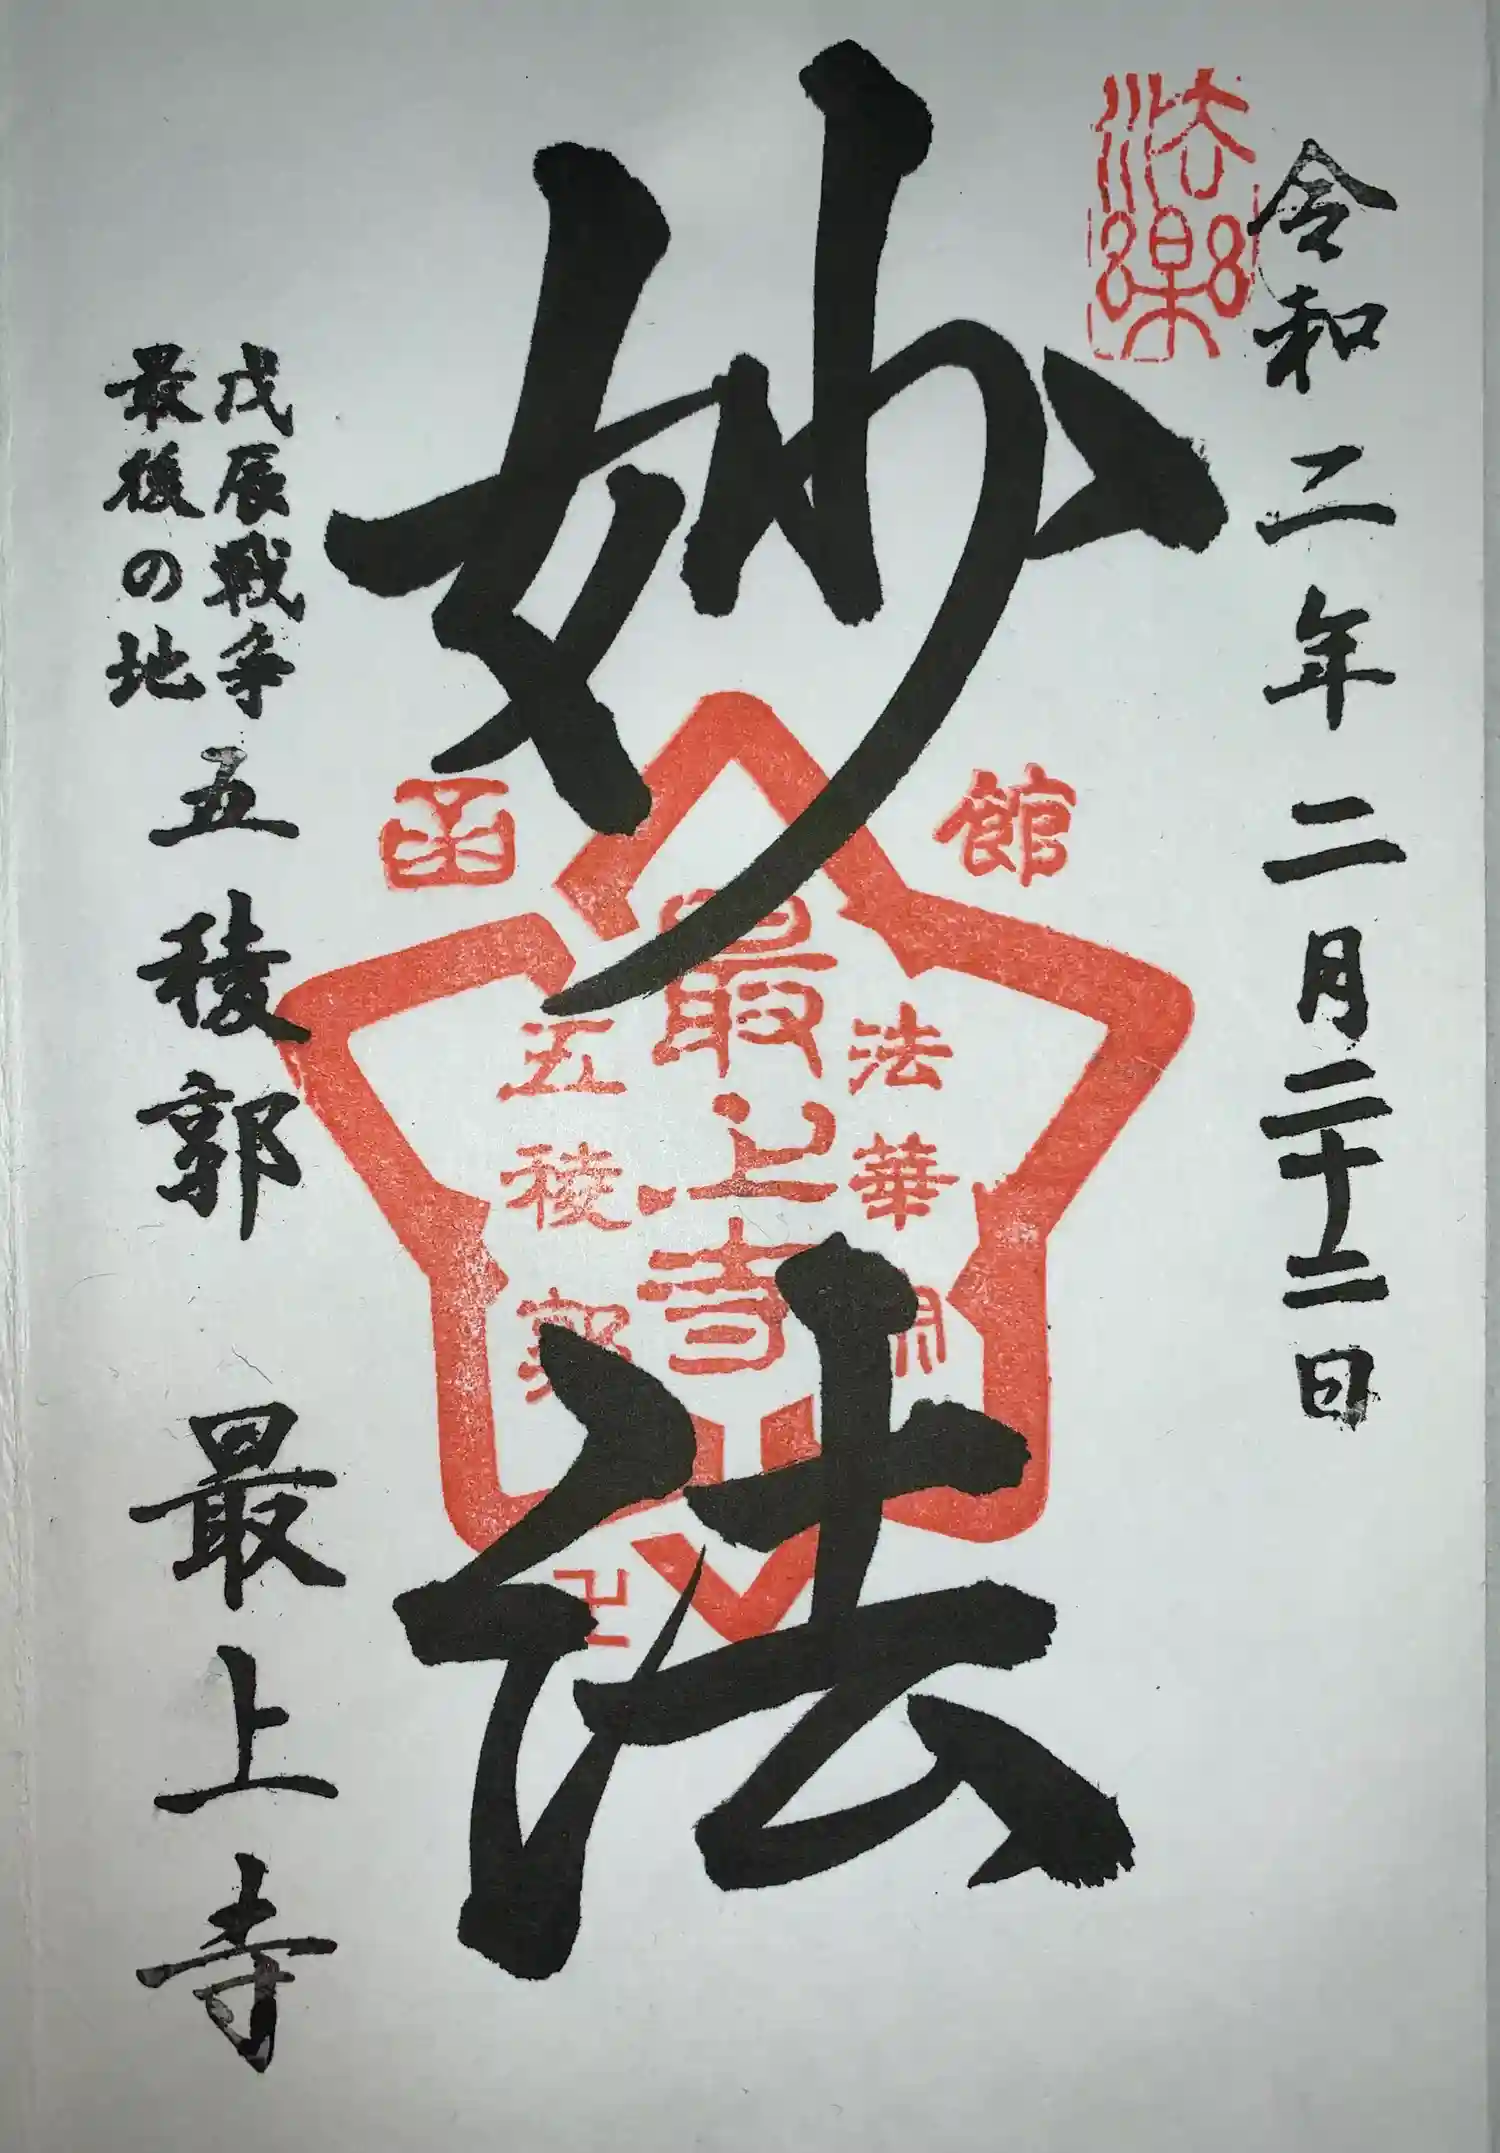 令和二年二月二十二日
法楽
妙法
函館
法華
最上寺
五稜郭
卍
戊辰戦争
最後の地
五稜郭 最上寺